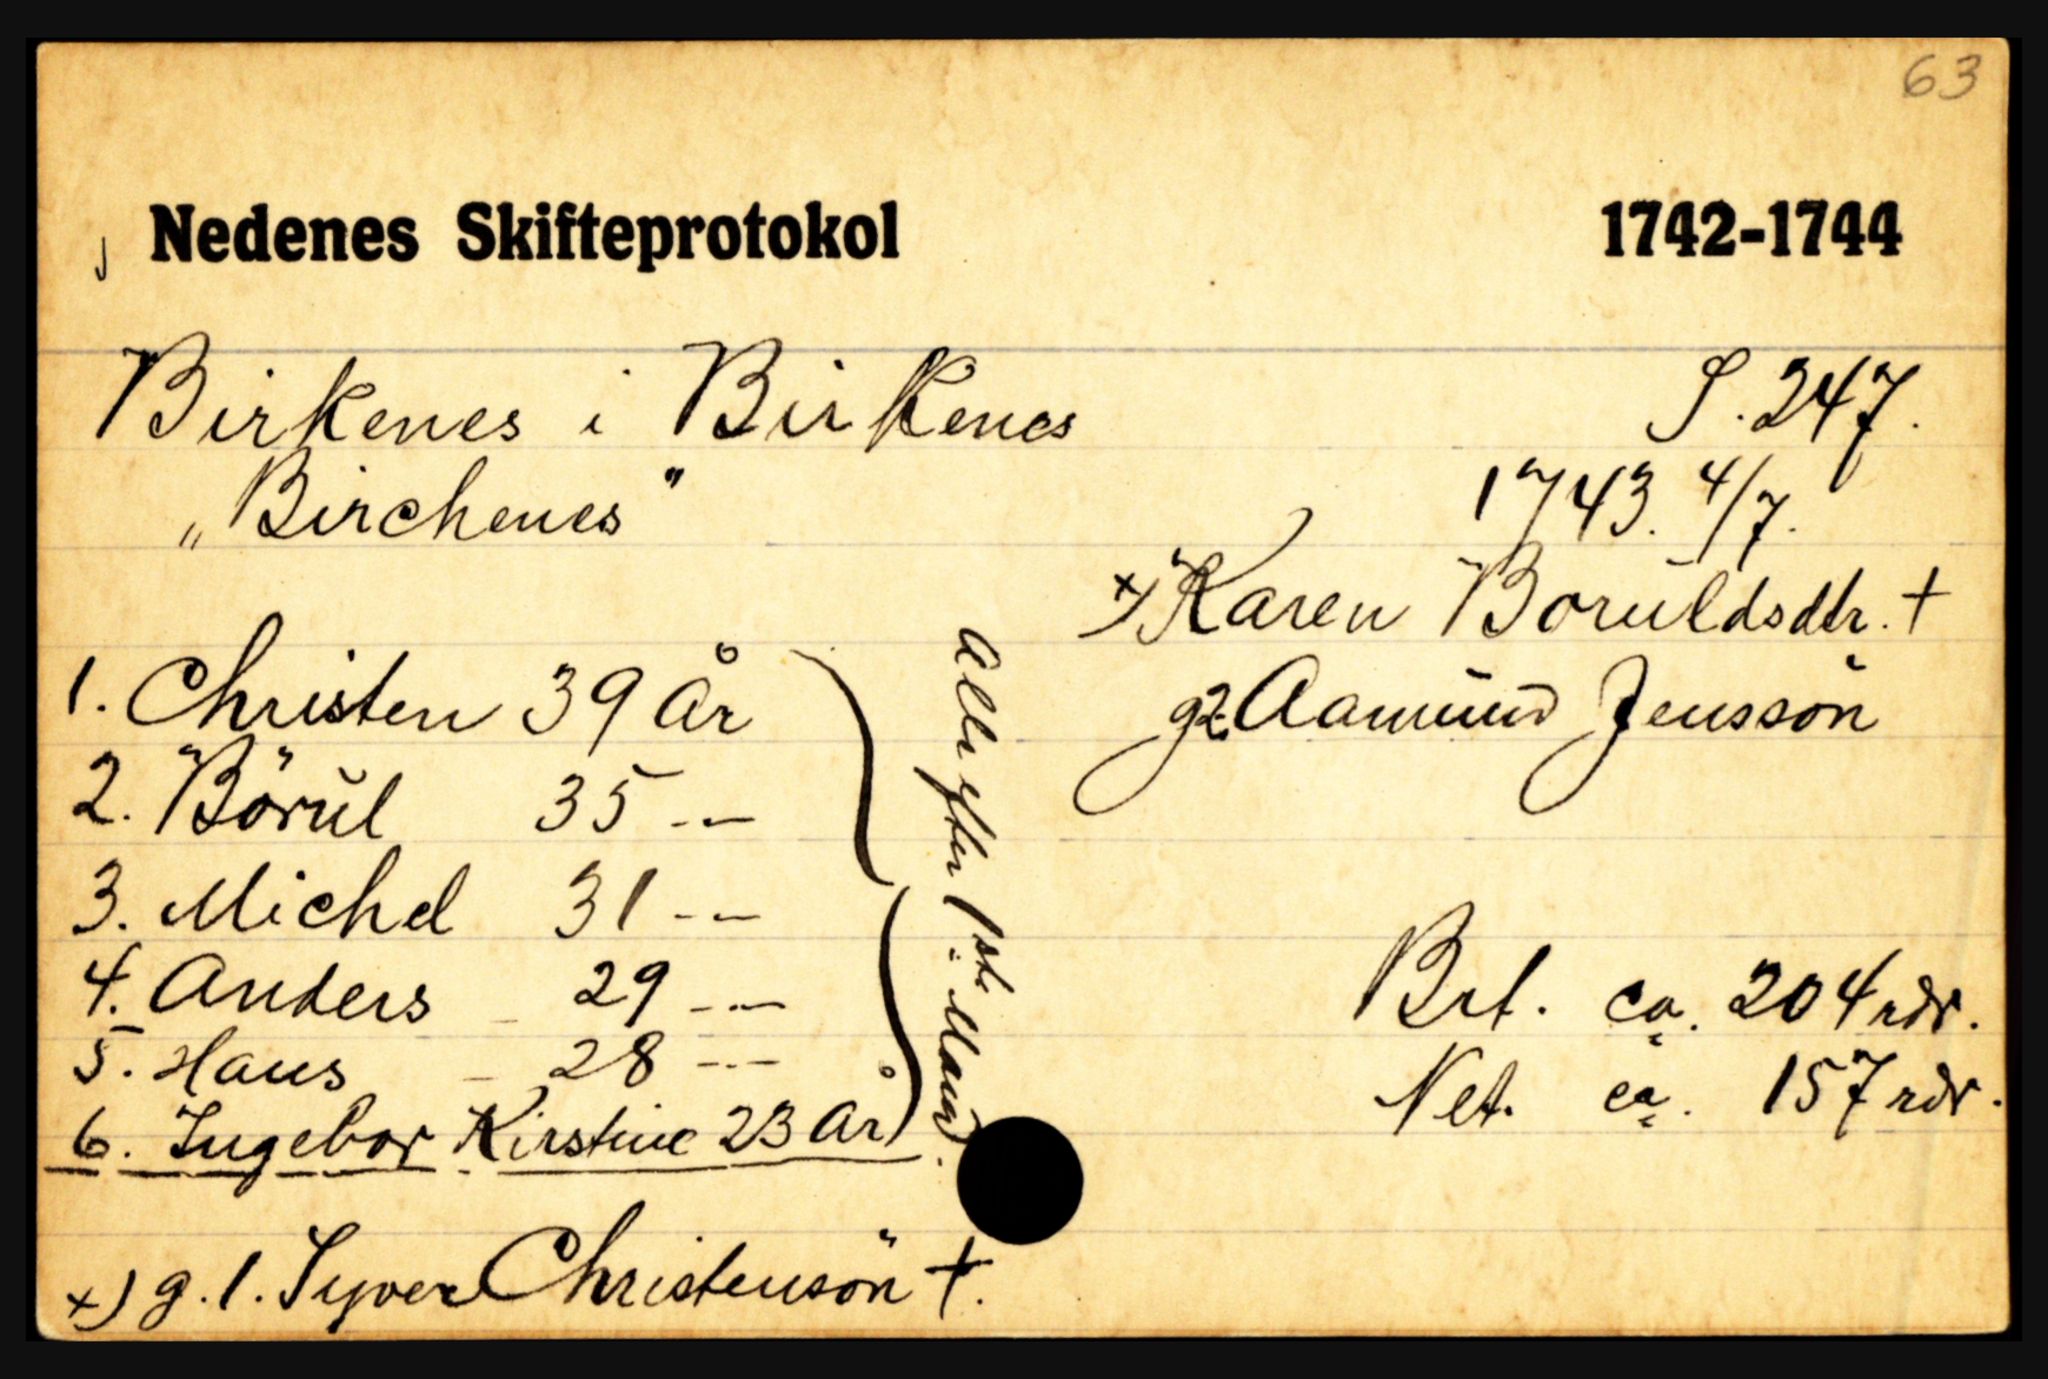 63
Nedenes Skifteprotokol 1742-1744
Birkenes i Birkenes S. 247.
„Birchenes" 1743. 4/7.
x) Karen Boruldsdtr. +
g2. Aamund Jensson
1. Christen 39 år
2. Börul 35 -"-
3. Michel 31 -"-
4. Anders 29 -"-
5. Hans 28 -"-
6. Ingebor Kirstine 23 år
Alle efter 1ste Mand.
Brt. ca. 204 rdr.
Net. ca. 157 rdr.
x) g. 1. Syver Christensön +.